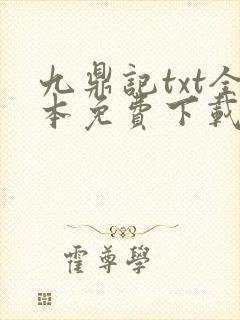 九鼎記txt全
本免費下載
霍尊學